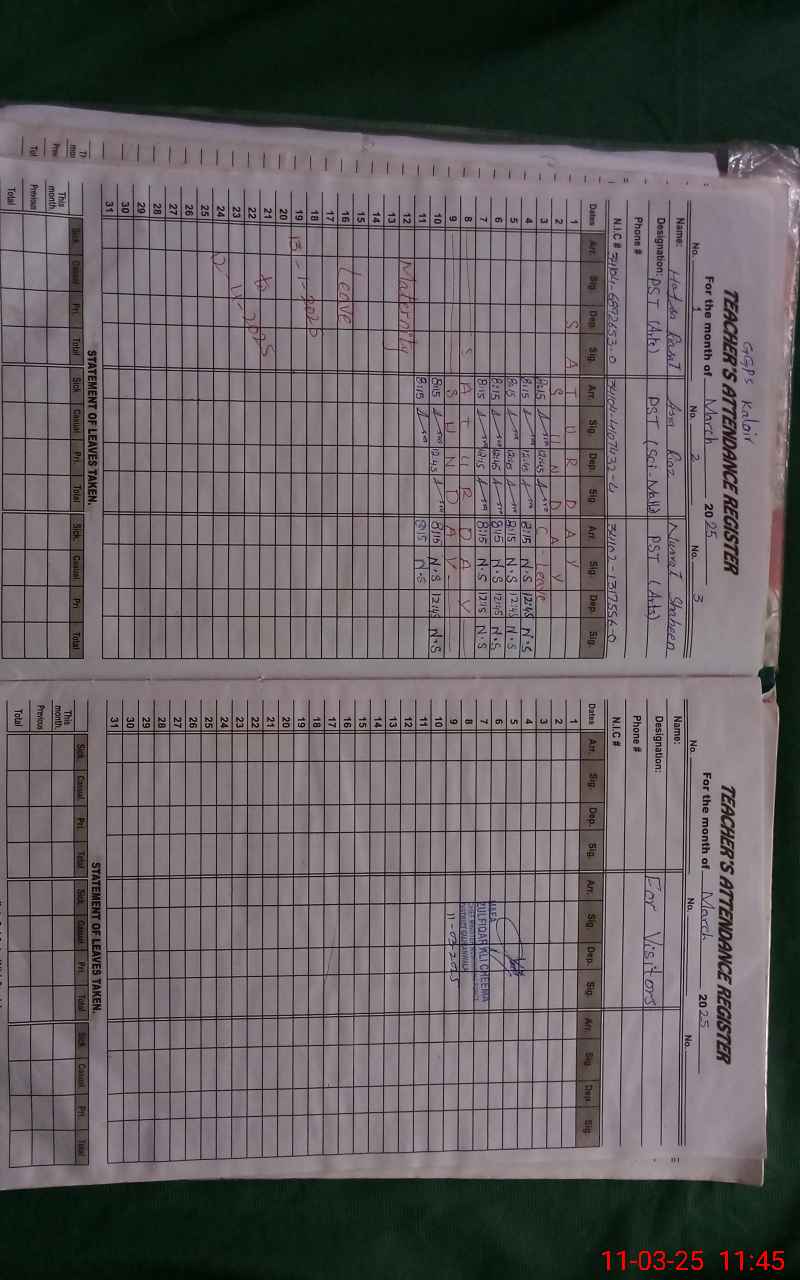 GGPS Kaloir
TEACHER'S ATTENDANCE REGISTER
For the month of March 2025
No. 1 No. 2 No. 3
Name: Asia Riaz Nusrat Shaheen
Designation: PST (Arts) PST (Sci-Math) PST (Arts)
Phone #
N.I.C #
Dates Arr. Sig. Dep. Sig. Arr. Sig. Dep. Sig. Arr. Sig. Dep. Sig.
1 S A T U R D A Y
2 S U N D A Y
3 8:15 12:45 C-Leave
4 8:15 12:45 8:15 N.S 12:45 N.S
5 8:15 12:45 8:15 N.S 12:45 N.S
6 8:15 12:45 8:15 N.S 12:45 N.S
7 8:15 12:15 8:15 N.S 12:15 N.S
8 S A T U R D A Y
9 S U N D A Y
10 8:15 12:45 8:15 N.S 12:45 N.S
11 8:15 8:15 N.S
12 Maternity
13
14
15
16 Leave
17
18
19
20
21
22
23
24
25
26
27
28
29
30
31
STATEMENT OF LEAVES TAKEN.
Sick Casual Pri. Total Sick Casual Pri. Total Sick Casual Pri. Total
This month
Previous
Total
TEACHER'S ATTENDANCE REGISTER
For the month of March 2025
No. No. No.
Name:
Designation: For Visitors
Phone #
N.I.C #
Dates Arr. Sig. Dep. Sig. Arr. Sig. Dep. Sig. Arr. Sig. Dep. Sig.
1
2
3
4
5
6
7 ZULFIQAR ALI CHEEMA
8
9 11-03-2025
10
11
12
13
14
15
16
17
18
19
20
21
22
23
24
25
26
27
28
29
30
31
STATEMENT OF LEAVES TAKEN.
Sick Casual Pri. Total Sick Casual Pri. Total Sick Casual Pri. Total
This month
Previous
Total
11-03-25 11:45